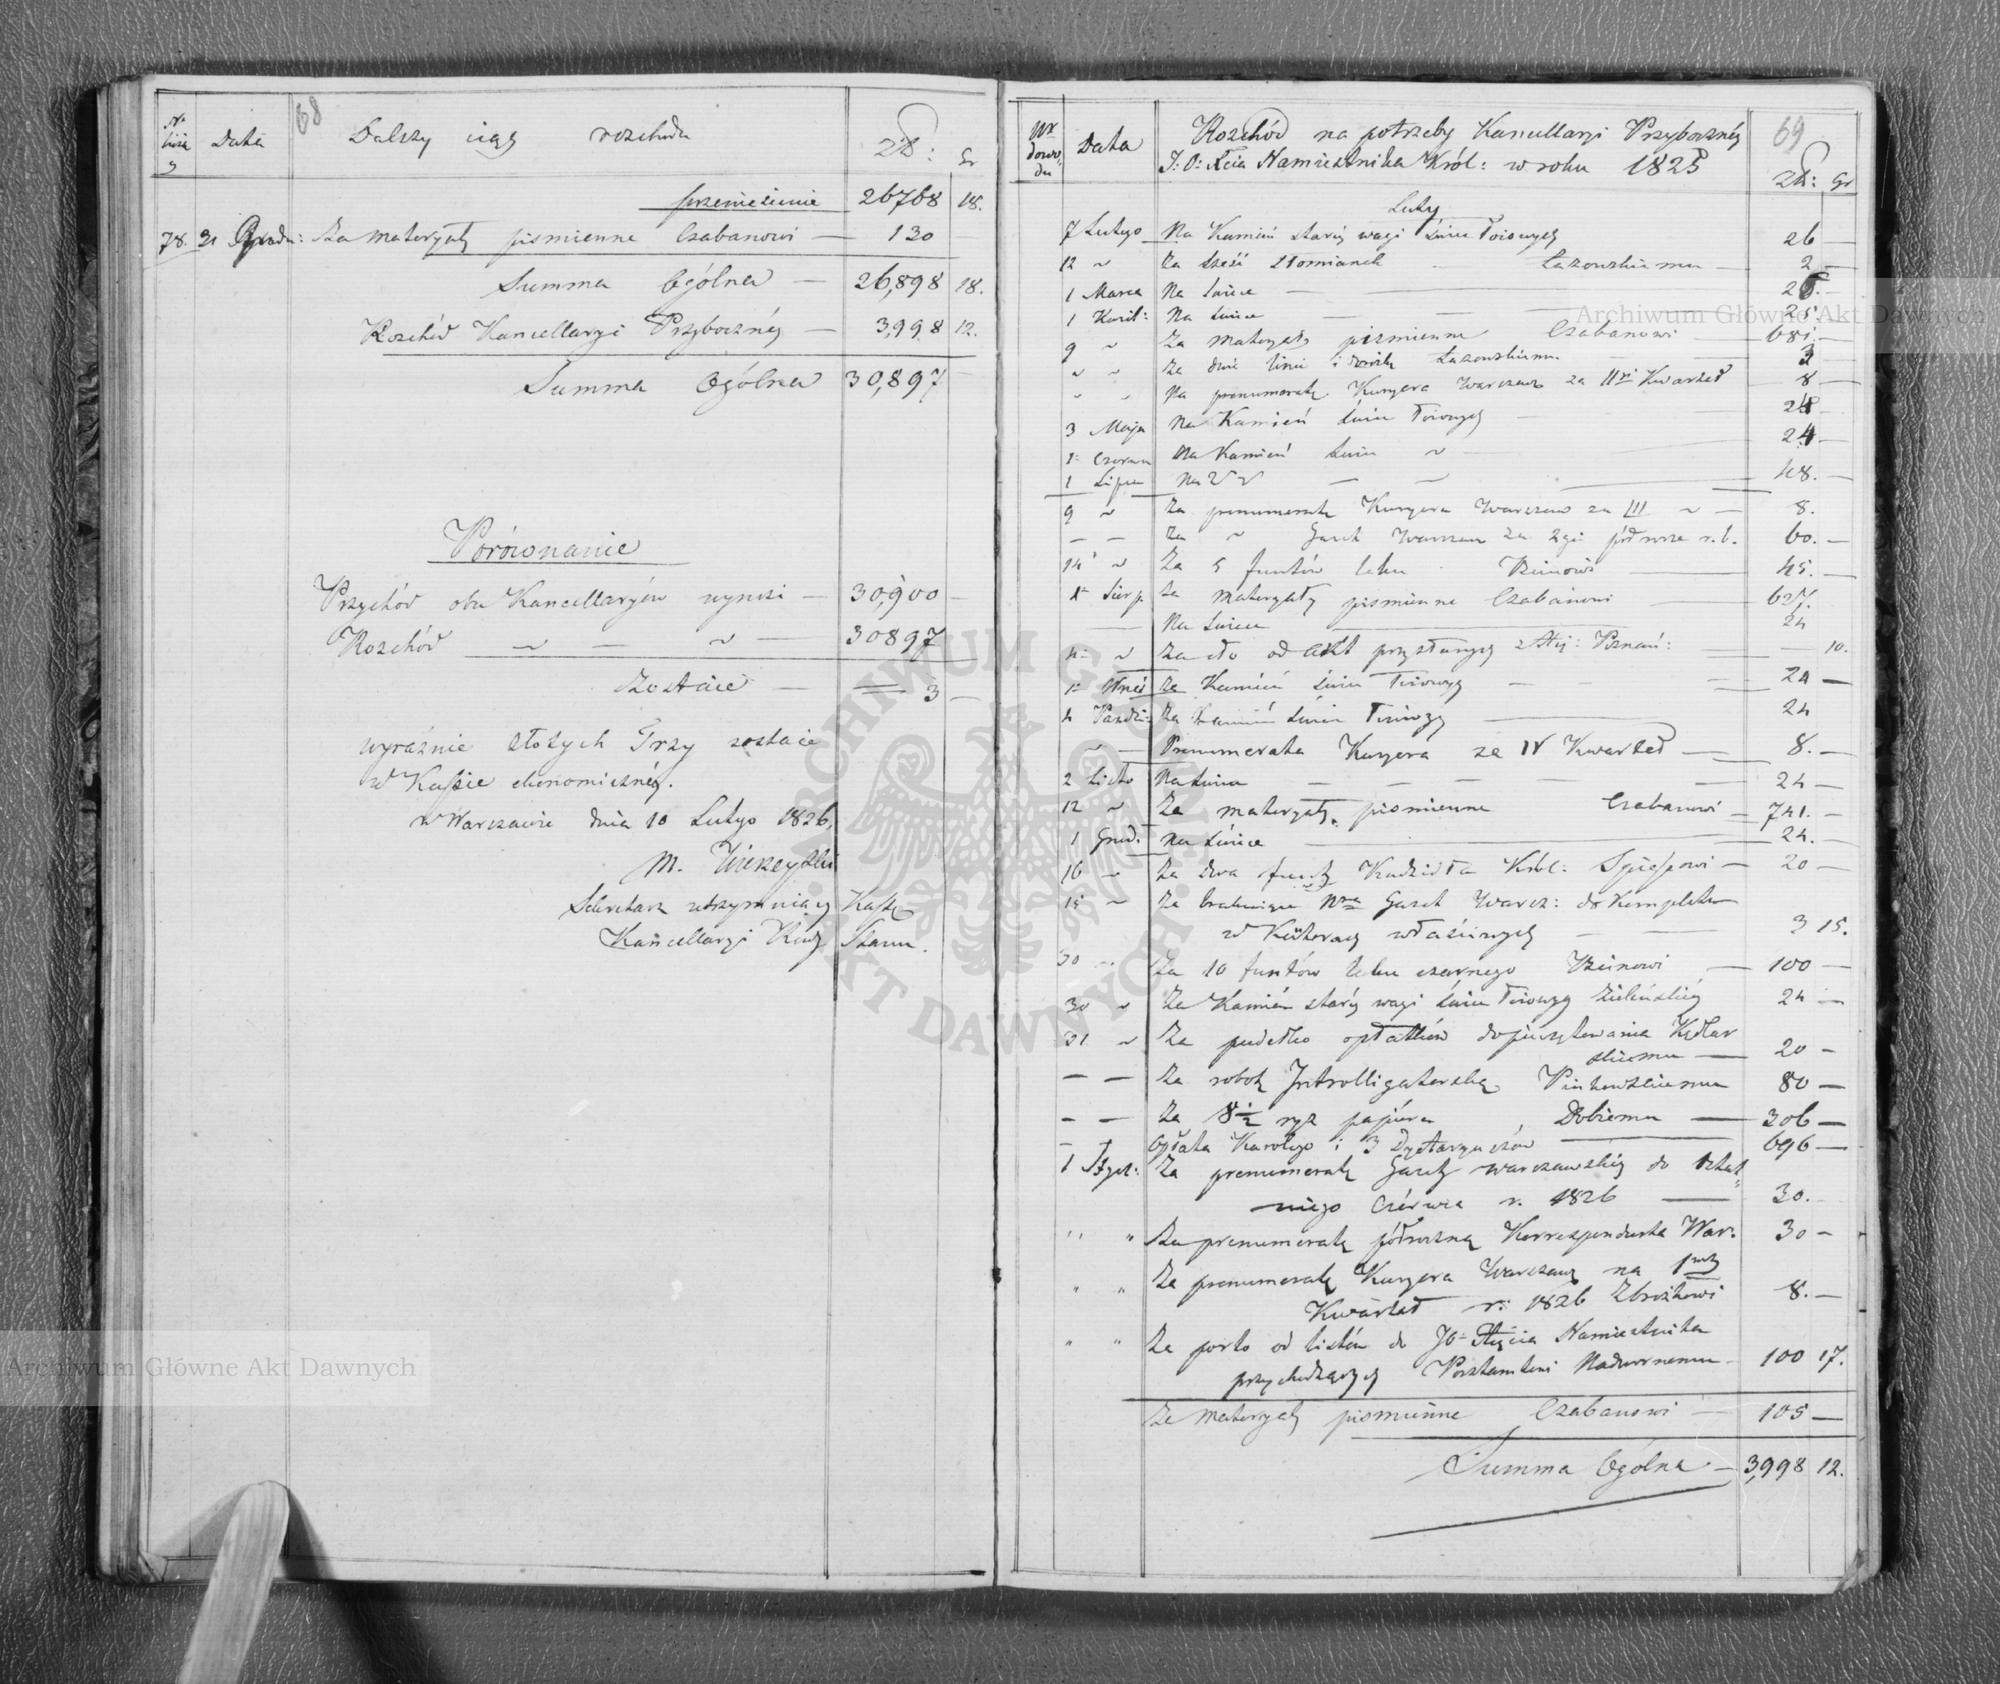 68
Nr bieżą
Data
Dalszy ciąg rozchodu
Zł: gr
przeniesienie 26768 18.
78. 31 Grudn: Za materyały piśmienne Czabanowi — 130
Summa Ogólna — 26,898 18.
Rozchód Kancellaryi Przybocznéy — 3,998 12.
Summa Ogólna 30,897 —
Porównanie
Przychód obu Kancellaryów wynosi — 30,900 —
Rozchód ~ — ~ — 30897
Zostaie — 3 —
wyraźnie złotych Trzy zostaie
w Kassie ekonomicznéy.
w Warszawie dnia 10 Lutego 1826.
M.
Sekretarz utrzymuiący Kassę
Kancellaryi Rady Stanu.
69
Nr dowodu
Data
Rozchód na potrzeby Kancellaryi Przybocznéy
J: O: Xcia Namiestnika Król: w roku 1825
Zł: gr
Luty
7 Lutego Na Kamień staréy wagi świec łoiowych 26 —
12 ~ Za sześć słomianek Łazowskiemu — 2 —
1 Marca Na świce — 26. —
1 Kwit: Na świce — — — 25. —
9 ~ Za materyały piśmienne Czabanowi — 681. —
~ ~ Za dwie linie i Łazowskiemu — 3
~ ~ Na prenumeratę Kuryera Warszaw za IIgi Kwartał 8 —
3 Maja Na Kamień świec łoiowych — 24 —
1 Czerwca Na Kamień świec ~ — 24 —
1 Lipca Na ~ ~ — ~ — 48. —
9 ~ Za prenumeratę Kuryera Warszaw za III ~ — 8.
— — Za ~ Gazet Warszaw za 2gie półrocze r. b. 60. —
14 ~ Za 5 funtów laku — 45. —
1 Sierp. Za materyały piśmienne Czabanowi — 627.
— Na świce — 24
4 ~ Za cło od akt przysłanych z Poznań: — 10.
1 Za Kamień świec łoiowych — — 24 —
4 Paździ: Za Kamień świec łoiowych — 24
~ — Prenumerata Kuryera za IV Kwartał — 8. —
2 Listo Na świce — — — — 24 —
12 ~ Za materyały piśmienne Czabanowi — 741. —
1 Grud. Na świce — 24. —
16 ~ Za dwa funty Kadzidła Król: Spiessowi — 20 —
15 ~ Za brakuiące Nra Gazet Warsz: do Kompletu
w właściwych — — 3 15.
30 ~ Za 10 funtów laku czarnego — 100 —
30 ~ Za Kamień staréy wagi świec łoiowych Zielińskiéy 24 —
31 ~ Za pudełko opłatków do pieczętowania Kędlar
skiemu — 20 —
— — Za robotę Introlligatorską Piotrowskiemu 80 —
— — Za 8 1/2 ryz papieru Dobremu — 306 —
— Opłata Karolego i 3 Dyetaryuszów — 696 —
1 Stycz: Za prenumeratę Gazety Warszawskiéy do ostat
niego Czerwca r. 1826 — 30.
" " Za prenumeratę półroczną Korrespondenta War: 30 —
" " Za prenumeratę Kuryera Warszaw na 1wszy
Kwartał r: 1826 Zbrożkowi 8. —
" " Za porto od listów do JO Xięcia Namiestnika
przychodzących Pocztamtowi Nadwornemu — 100 17.
Za materyały piśmienne Czabanowi — 105 —
Summa Ogólna — 3,998 12.
Archiwum Główne Akt Dawnych
Archiwum Główne Akt Dawnych
ARCHIWUM GŁÓWNE AKT DAWNYCH